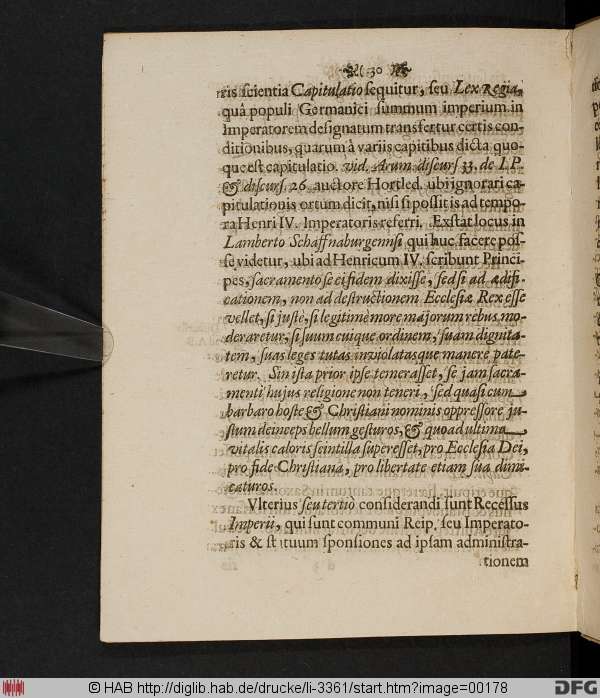 30
ris scientia Capitulatio sequitur, seu Lex Regia,
quâ populi Germanici summum imperium in
Imperatorem designatum transfertur certis con-
ditionibus, quarum à variis capitibus dicta quo-
que est capitulatio. vid. Arum. discurs. 33. de I. P.
& discurs. 26. auctore Hortled. ubi ignorari ca-
pitulationis ortum dicit, nisi si possit is ad tempo-
ra Henri IV. Imperatoris referri. Exstat locus in
Lamberto Schaffnaburgennsi qui huc facere pos-
se videtur, ubi ad Henricum IV. scribunt Princi-
pes, sacramento se ei fidem dixisse, sed si ad ædifi-
cationem, non ad destructionem Ecclesiæ Rex esse
vellet, si justè, si legitimè more majorum rebus mo-
deraretur, si suum cuique ordinem, suam dignita-
tem, suas leges tutas inviolatasque manere pate-
retur. Sin ista prior ipse temerasset, se jam sacra-
menti hujus religione non teneri, sed quasi cum
barbaro hoste & Christiani nominis oppressore ju-
stum deinceps bellum gesturos, & quoad ultima
vitalis caloris scintilla superesset, pro Ecclesia Dei,
pro fide Christiana, pro libertate etiam sua dimi-
caturos.
Vlterius seu tertiò considerandi sunt Recessus
Imperii, qui sunt communi Reip. seu Imperato-
ris & statuum sponsiones ad ipsam administra-
tionem
© HAB http://diglib.hab.de/drucke/li-3361/start.htm?image=00178
DFG